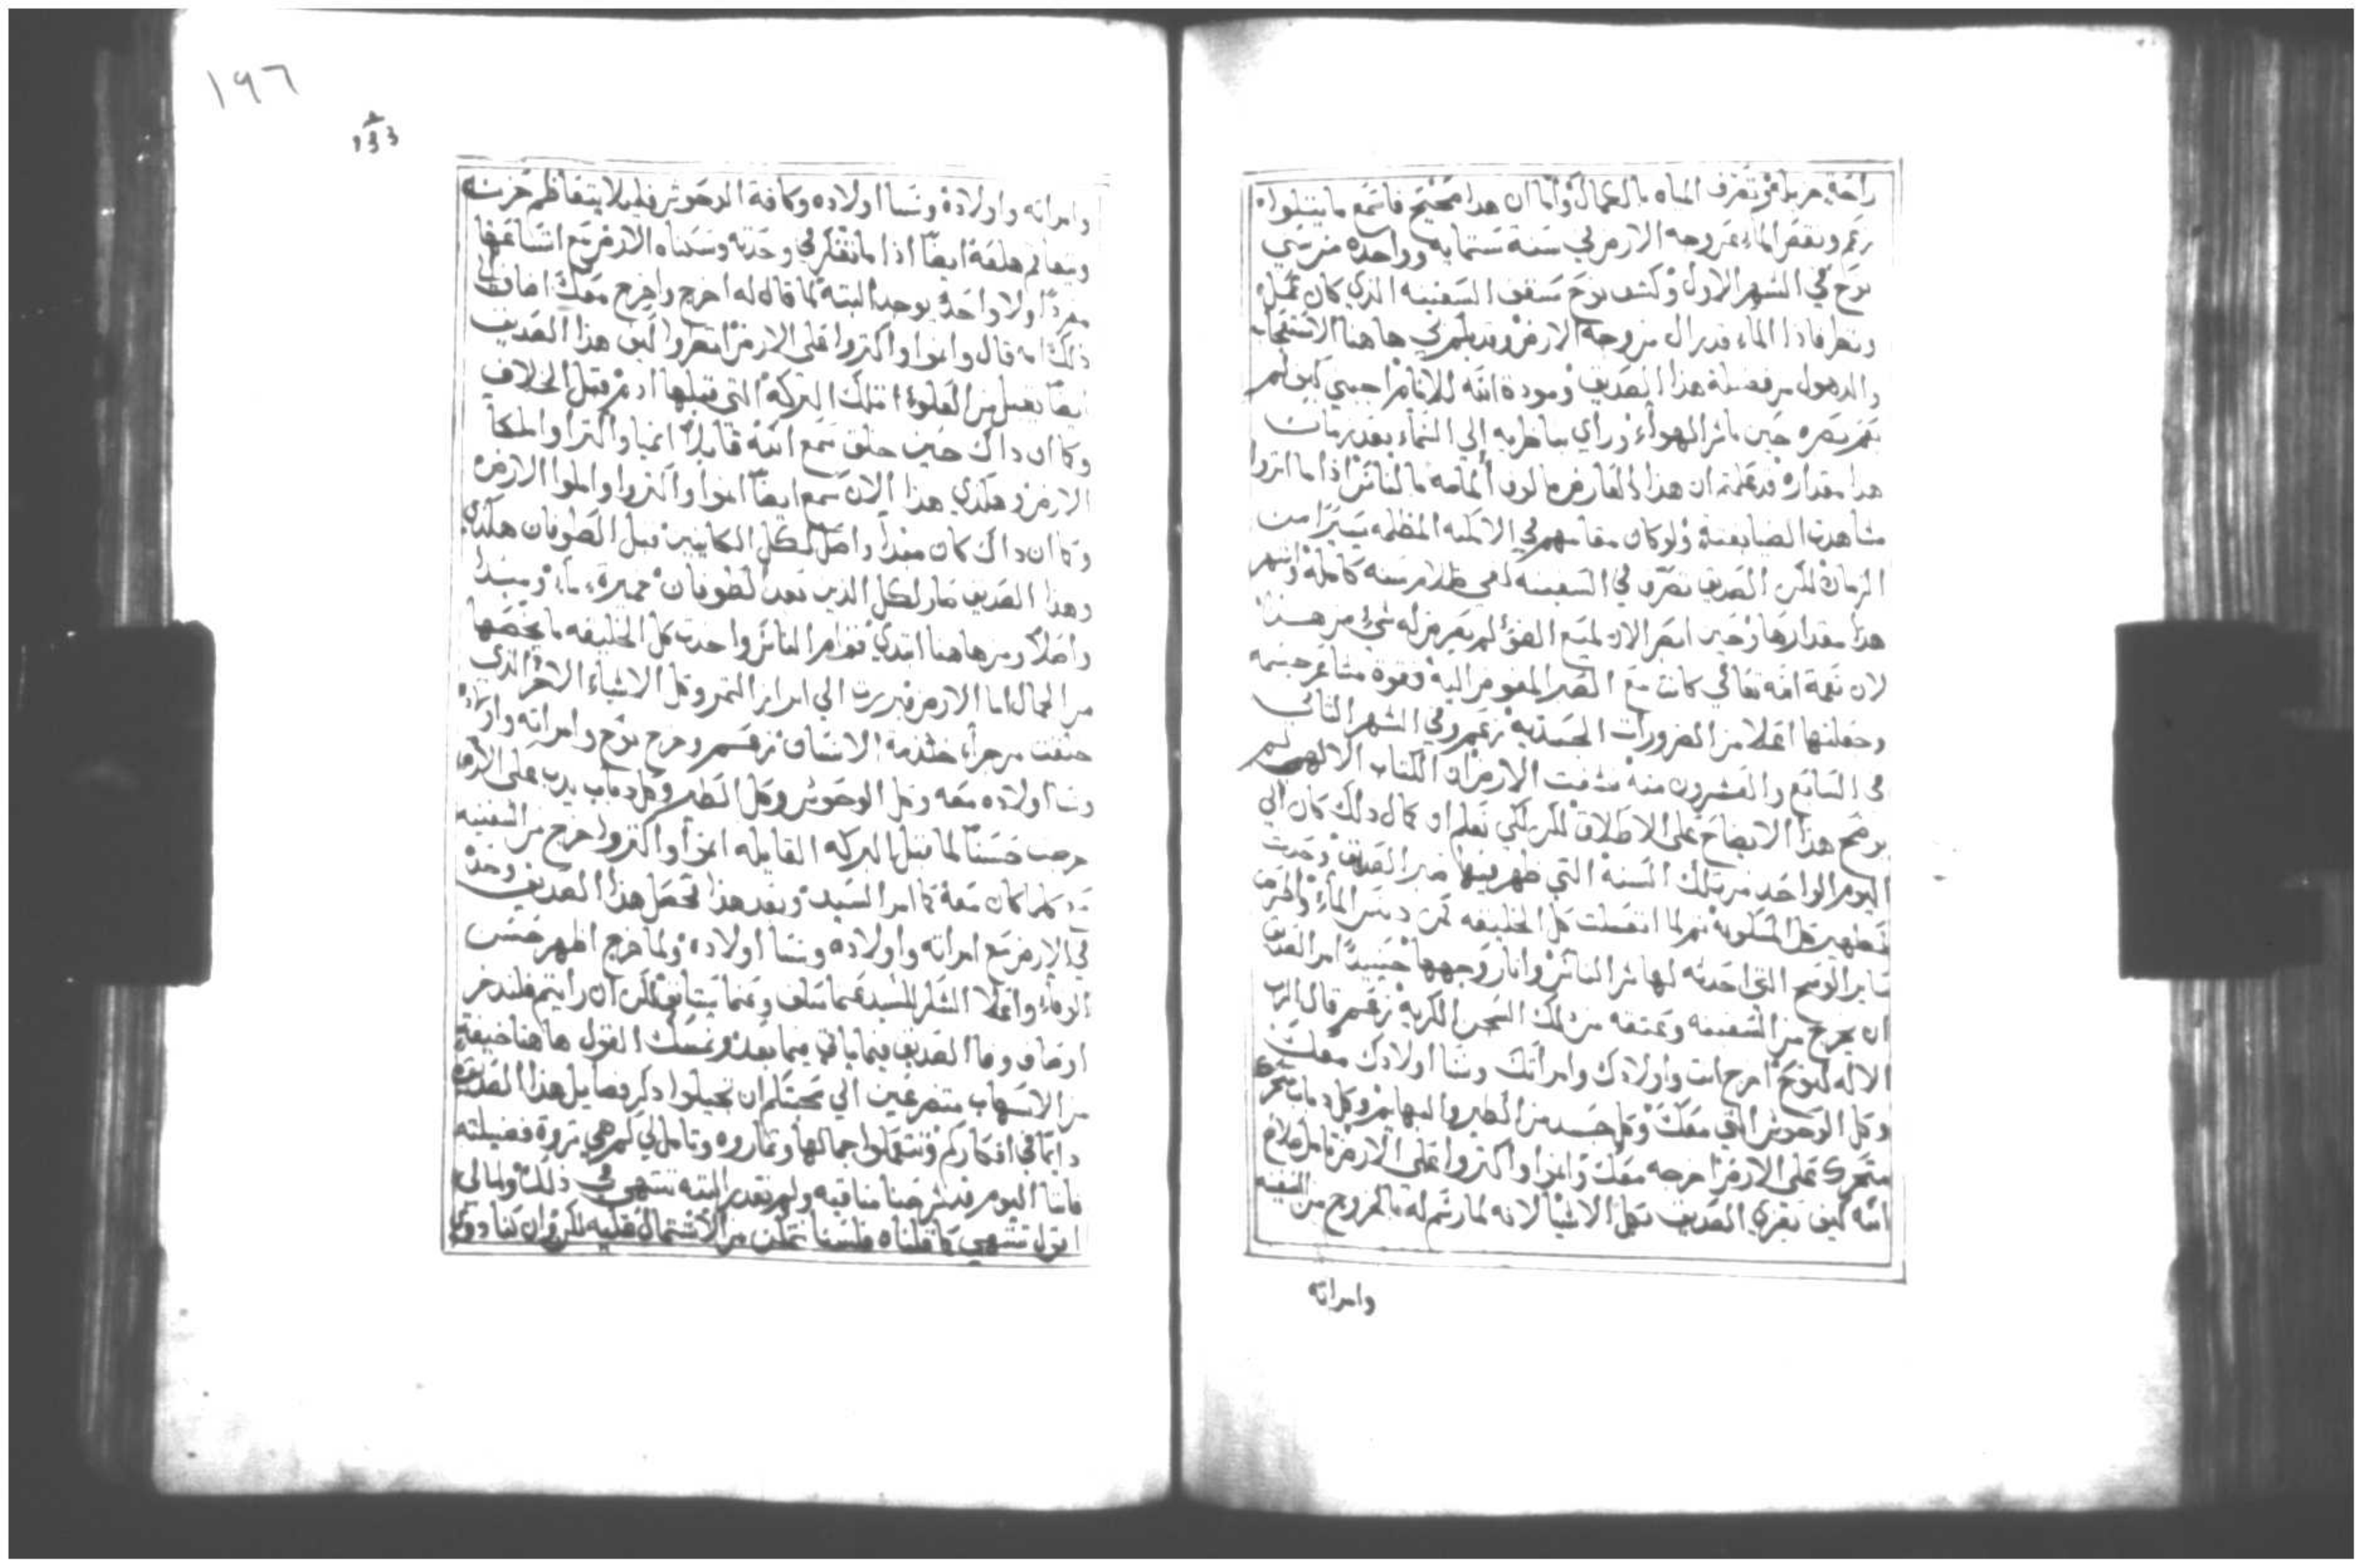 راحة جزيلة فوتعرف المياه بالكمال واما ان هدا صحيح فاسمع ما يتلوا
زعم ونقص الماء عن وجه الارض في سنة ستمايه وواحده من سني
نوح في الشهر الاول وكشف نوح سقف السفينه الذي كان عمله
ونظر فاذا الماء قد زال من وجه الارض وقد يلزمني ها هنا الاستعجاب
والدهول من فضيلة هذا الصديق ومودة الله للانام اجبني كيف لم
بصره حين باشر الهواء وراي بناظريه الي السماء بعد زمان
هذا مقداره قد علمتم ان هذا العارض مالوف المامه بالناس اذا ما اثروا
مشاهدة الضيا بغتة ولو كان مقامهم في الامكنه المظلمه يسيرا من
الزمان لكن الصديق تصرف في السفينه في ظلام سنه كامله واشهر
هذا مقدارها وحين ابصر الان لميع الضؤ لم يعرض له شي من هذا
لان نعمة الله تعالي كانت مع الصبر المفوض اليه وقوة مشاعر جسمه
وجعلتها اعلا من الضرورات الجسديه زعم وفي الشهر الثاني
في السابع والعشرون منه نشفت الارض ان الكتاب الالهي لم
يوضح هذا الايضاح على الاطلاق لكن لكي نعلم ان كمال ذلك كان الي
اليوم الواحد من تلك السنه التي ظهر فيها صبر الصديق وحدث
تطهير كل المسكونة ثم لما انغسلت كل الخليقه من دنس الماء واطرحت
ساير الوسخ التي احدثه لها شر الناس وانار وجهها حينيذ امر الصديق
ان يخرج من السفينه وعتقه من تلك السجن الكريه زعم قال الرب
الاله لنوح اخرج انت واولادك وامراتك ونسا اولادك معك
وكل الوحوش التي معك وكل جسد من الطير والبهايم وكل دباب متحرك
متحرك على الارض اخرجه معك وانموا واكثروا على الارض تامل صلاح
الله كيف يعزي الصديق بكل الاشيا لانه لما رسم له بالخروج من السفينه
وامراته
١٩٦
وامراته واولاده ونسا اولاده وكافة الوحوش فليلا يتعاظم حزنه
ايضا اذا ما تفكر في وحدته وسكناه الارض مع اتساعها
مفردا ولا واحد يوجد البته لما قال له اخرج واخرج معك اضاف
ذلك انه قال وانموا واكثروا على الارض انظروا كيف هذا الصديق
ايضا يقبل من العلوا تلك البركه التي قبلها ادم قبل الخلاف
وكما ان داك حين خلق سمع الله قايلا انميا واكثرا واملكا
الارض وهكذي هذا الان سمع ايضا انموا واكثروا واملوا الارض
وكما ان داك كان مبدا واصل لكل الكاينين قبل الطوفان هكذي
وهذا الصديق صار لكل الذين بعد الطوفان خميرة ما ومبدا
واصلا ومن ها هنا ابتدي قوام الناس واخدت كل الخليقه ما يخصها
من الجمال اما الارض فبرزت الي ابراز الثمر وكل الاشياء الاخر الذي
خلقت من جراء خدمة الانسان زعم وخرج نوح وامراته واولاده
ونسا اولاده معه وكل الوحوش وكل الطير وكل دباب يدب على الارض
خرجت حسنا لما قبل البركه القايله انموا واكثروا خرج من السفينه
مع كلما كان معه كما امر السيد وبعد هذا تحصل هذا الصديق وحده
في الارض مع امراته واولاده ونسا اولاده ولما خرج اظهر حسن
الوفاء واعلا الشكر للسيد عما سلف وعما يستانف لكن ان رايتم فلندخر
اوصاف وفا الصديق فيما ياتي فيما بعد ونمسك القول ها هنا خيفة
من الاسهاب متضرعين الي محبتكم ان تجيلوا ذكر فضايل هذا الصديق
دايما في افكاركم وتستعملوا جمالها وتماروه وتامل لي كم هي ثروة فضيلته
فاننا اليوم قد شرحنا مناقبه ولم نقدر البته ننتهي في ذلك ولما لي
اقول ننتهي كلما قلناه فلسنا نتمكن من الاشتمال عليه لكن وان كنا دون